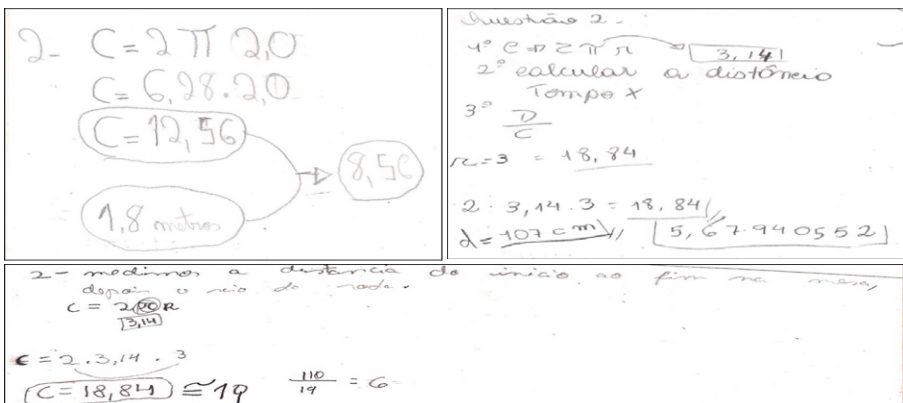 2- C = 2 π 2,0
C = 6,28 . 2,0
C = 12,56
8,56
1,8 metros
Questão 2 -
1º C = 2 π r 3,14
2º calcular a distância
Tempo x
3º D/C
r = 3 = 18,84
2 . 3,14 . 3 = 18,84
d = 107 cm 5,67.940552
2 - medimos a distancia do inicio ao fim na mesa,
depois o raio da roda.
C = 2 R
3,14
C = 2 . 3,14 . 3
C = 18,84 ≅ 19 110/19 = 6